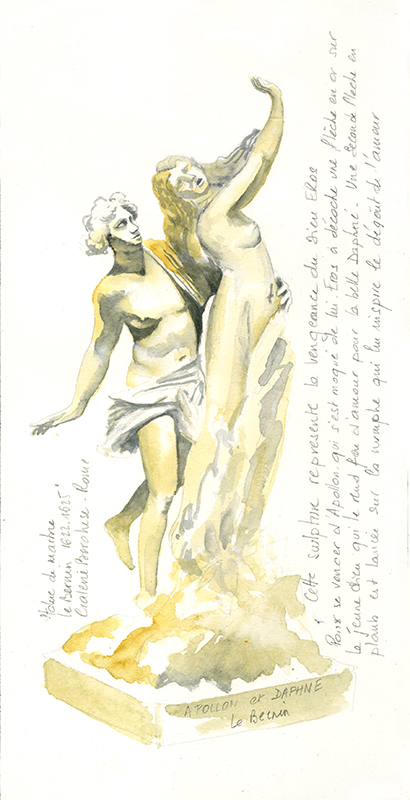 Cette sculpture représente la vengeance du Dieu Eros
Pour se venger d'Apollon qui s'est moqué de lui Eros a décoché une flèche en or sur
le jeune dieu qui le rend fou d'amour pour la belle Daphné. Une seconde flèche en
plomb est lancée sur la nymphe qui lui inspire le dégoût de l'amour
de marbre
le Bernin 1622.1625
Galerie Borghese - Rome
APOLLON et DAPHNE
Le Bernin